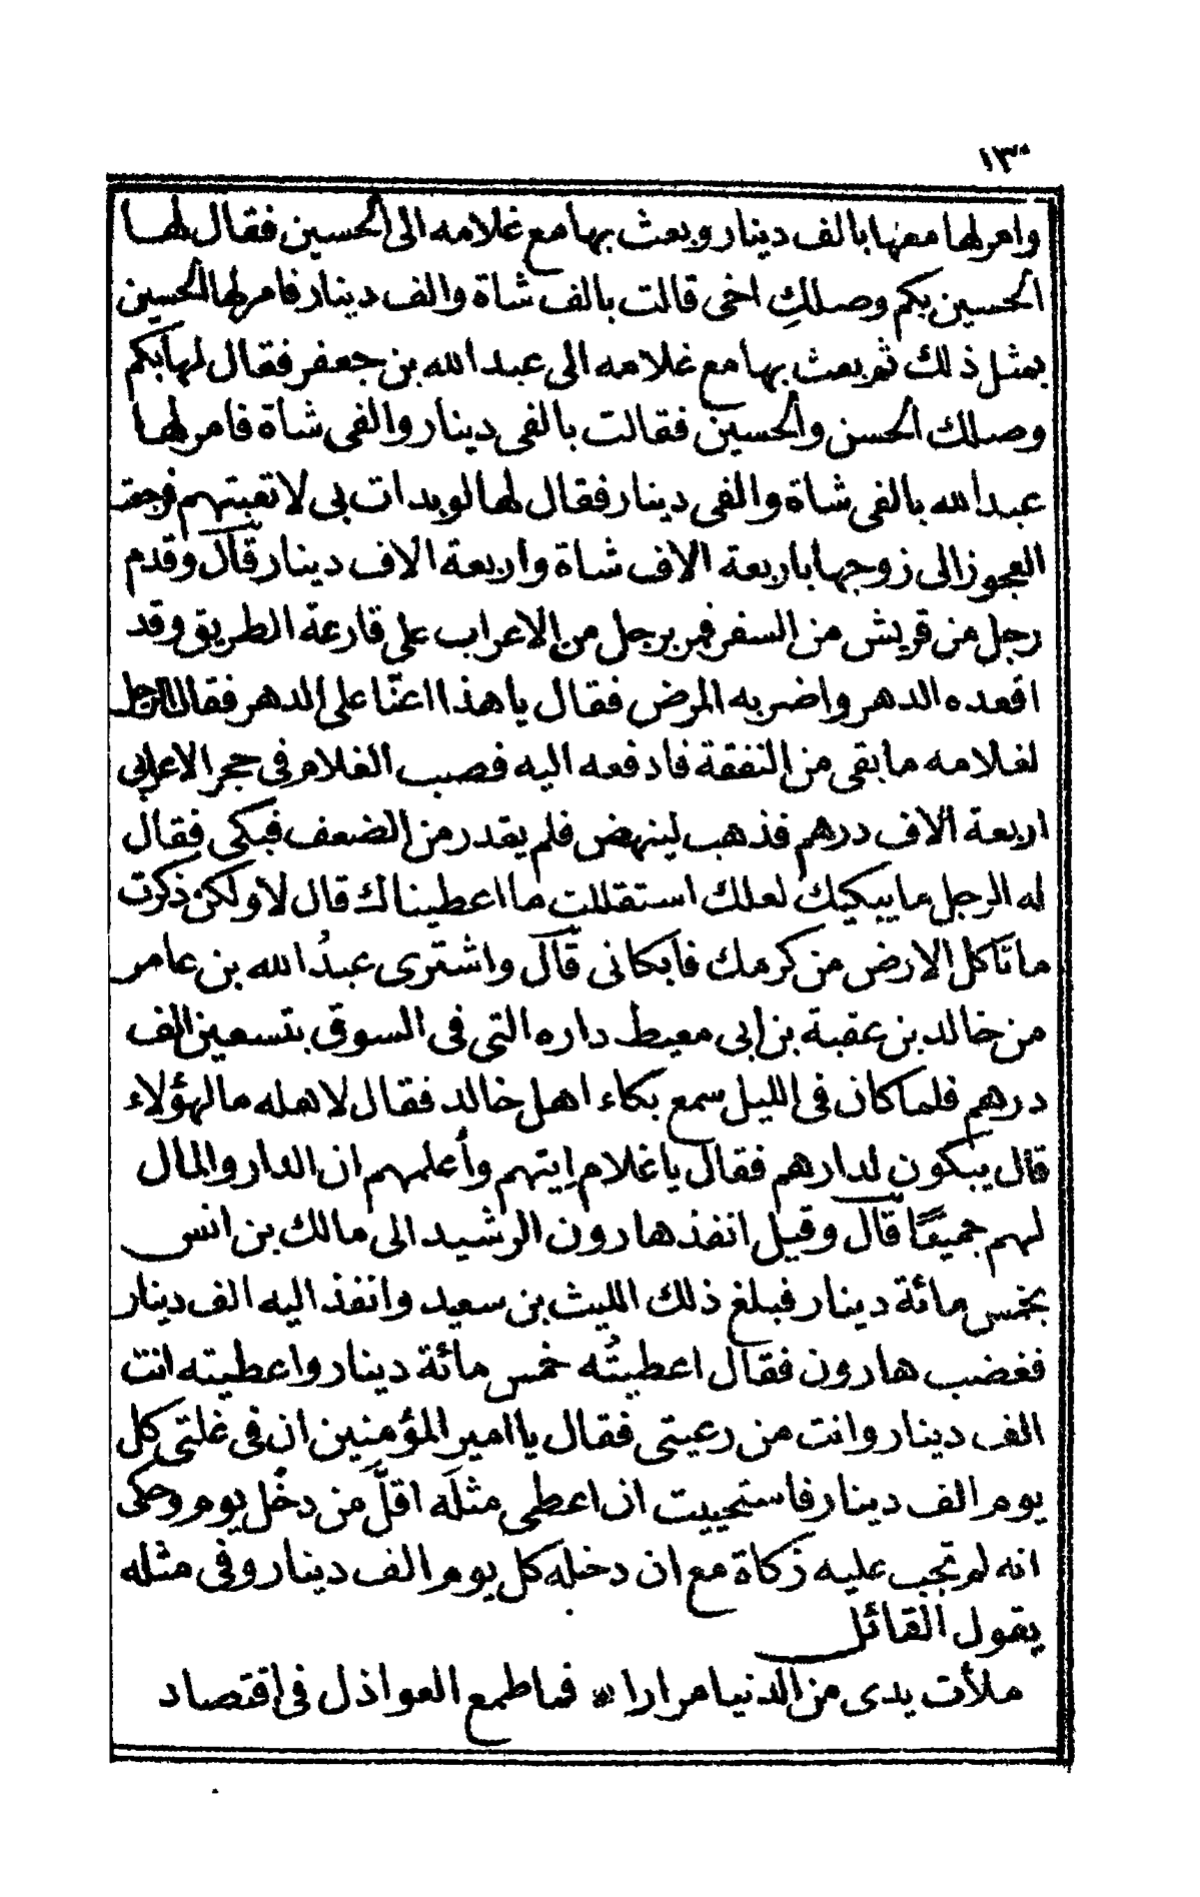 ١٣٠
وامر لها معها بالف دينار وبعث بها مع غلامه الى الحسين فقال لها
الحسين بكم وصلكِ اخى قالت بالف شاة والف دينار فامر لها الحسين
بمثل ذلك ثم بعث بها مع غلامه الى عبد الله بن جعفر فقال لها بكم
وصلك الحسن والحسين فقالت بالفى دينار والفى شاة فامر لها
عبد الله بالفى شاة والفى دينار فقال لها لو بدات بى لاتعبتهم فرجعت
العجوز الى زوجها باربعة الاف شاة واربعة الاف دينار قال وقدم
رجل من قريش من السفر فمر برجل من الاعراب على قارعة الطريق وقد
اقعده الدهر واضر به المرض فقال يا هذا اعنّا على الدهر فقال الرجل
لغلامه ما بقى من النفقة فادفعه اليه فصب الغلام فى حجر الاعرابى
اربعة الاف درهم فذهب لينهض فلم يقدر من الضعف فبكى فقال
له الرجل ما يبكيك لعلك استقللت ما اعطيناك قال لا ولكن ذكرت
ما تاكل الارض من كرمك فابكانى قال واشترى عبدُ الله بن عامر
من خالد بن عقبة بن ابى معيط داره التى فى السوق بتسعين الف
درهم فلما كان فى الليل سمع بكاء اهل خالد فقال لاهله ما لهؤلاء
قال يبكون لدارهم فقال يا غلام ايتهم وأعلمهم ان الدار والمال
لهم جميعًا قال وقيل انفذ هارون الرشيد الى مالك بن انس
بخمس مائة دينار فبلغ ذلك الليث بن سعيد وانفذ اليه الف دينار
فغضب هارون فقال اعطيتُه خمس مائة دينار واعطيته انت
الف دينار وانت من رعيتى فقال يا امير المؤمنين ان فى غلتى كل
يوم الف دينار فاستحييت ان اعطى مثلَه اقلَّ من دخْل يوم وحكى
انه لم تجب عليه زكاة مع ان دخله كل يوم الف دينار وفى مثله
يقول القائل
ملأت يدى من الدنيا مرارا ۞ فما طمع العواذل فى اقتصاد